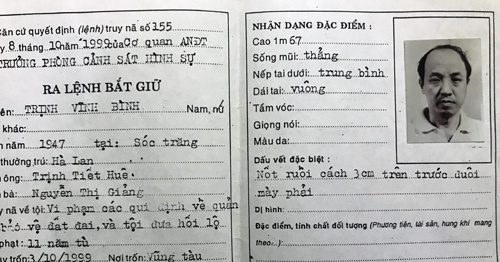 Căn cứ quyết định (lệnh) truy nã số 155
8 tháng 10 năm 1999 của Cơ quan ANĐT
TRƯỞNG PHÒNG CẢNH SÁT HÌNH SỰ
RA LỆNH BẮT GIỮ
TRỊNH VĨNH BÌNH Nam, nữ
khác:
năm 1947 tại: Sóc trăng
thường trú: Hà Lan
ông: Trịnh Tiết Huê
bà: Nguyễn Thị Giảng
nã về tội: Vi phạm các qui định về quản
vệ đat đai, và tội đưa hối lộ
phạt: 11 năm tù
trốn: 3/10/1999 Nơi trốn: Vũng tàu
NHẬN DẠNG ĐẶC ĐIỂM :
Cao 1m 67
Sống mũi: thẳng
Nếp tai dưới: trung bình
Dái tai: vuông
Tầm vóc:
Giọng nói:
Màu da:
Dấu vết đặc biệt :
Nốt ruồi cách 3cm trên trước đuôi
mày phải
Dị hình:
Đặc điểm, tính chất đối tượng (Phương tiện, tài sản, hung khí mang
theo...)